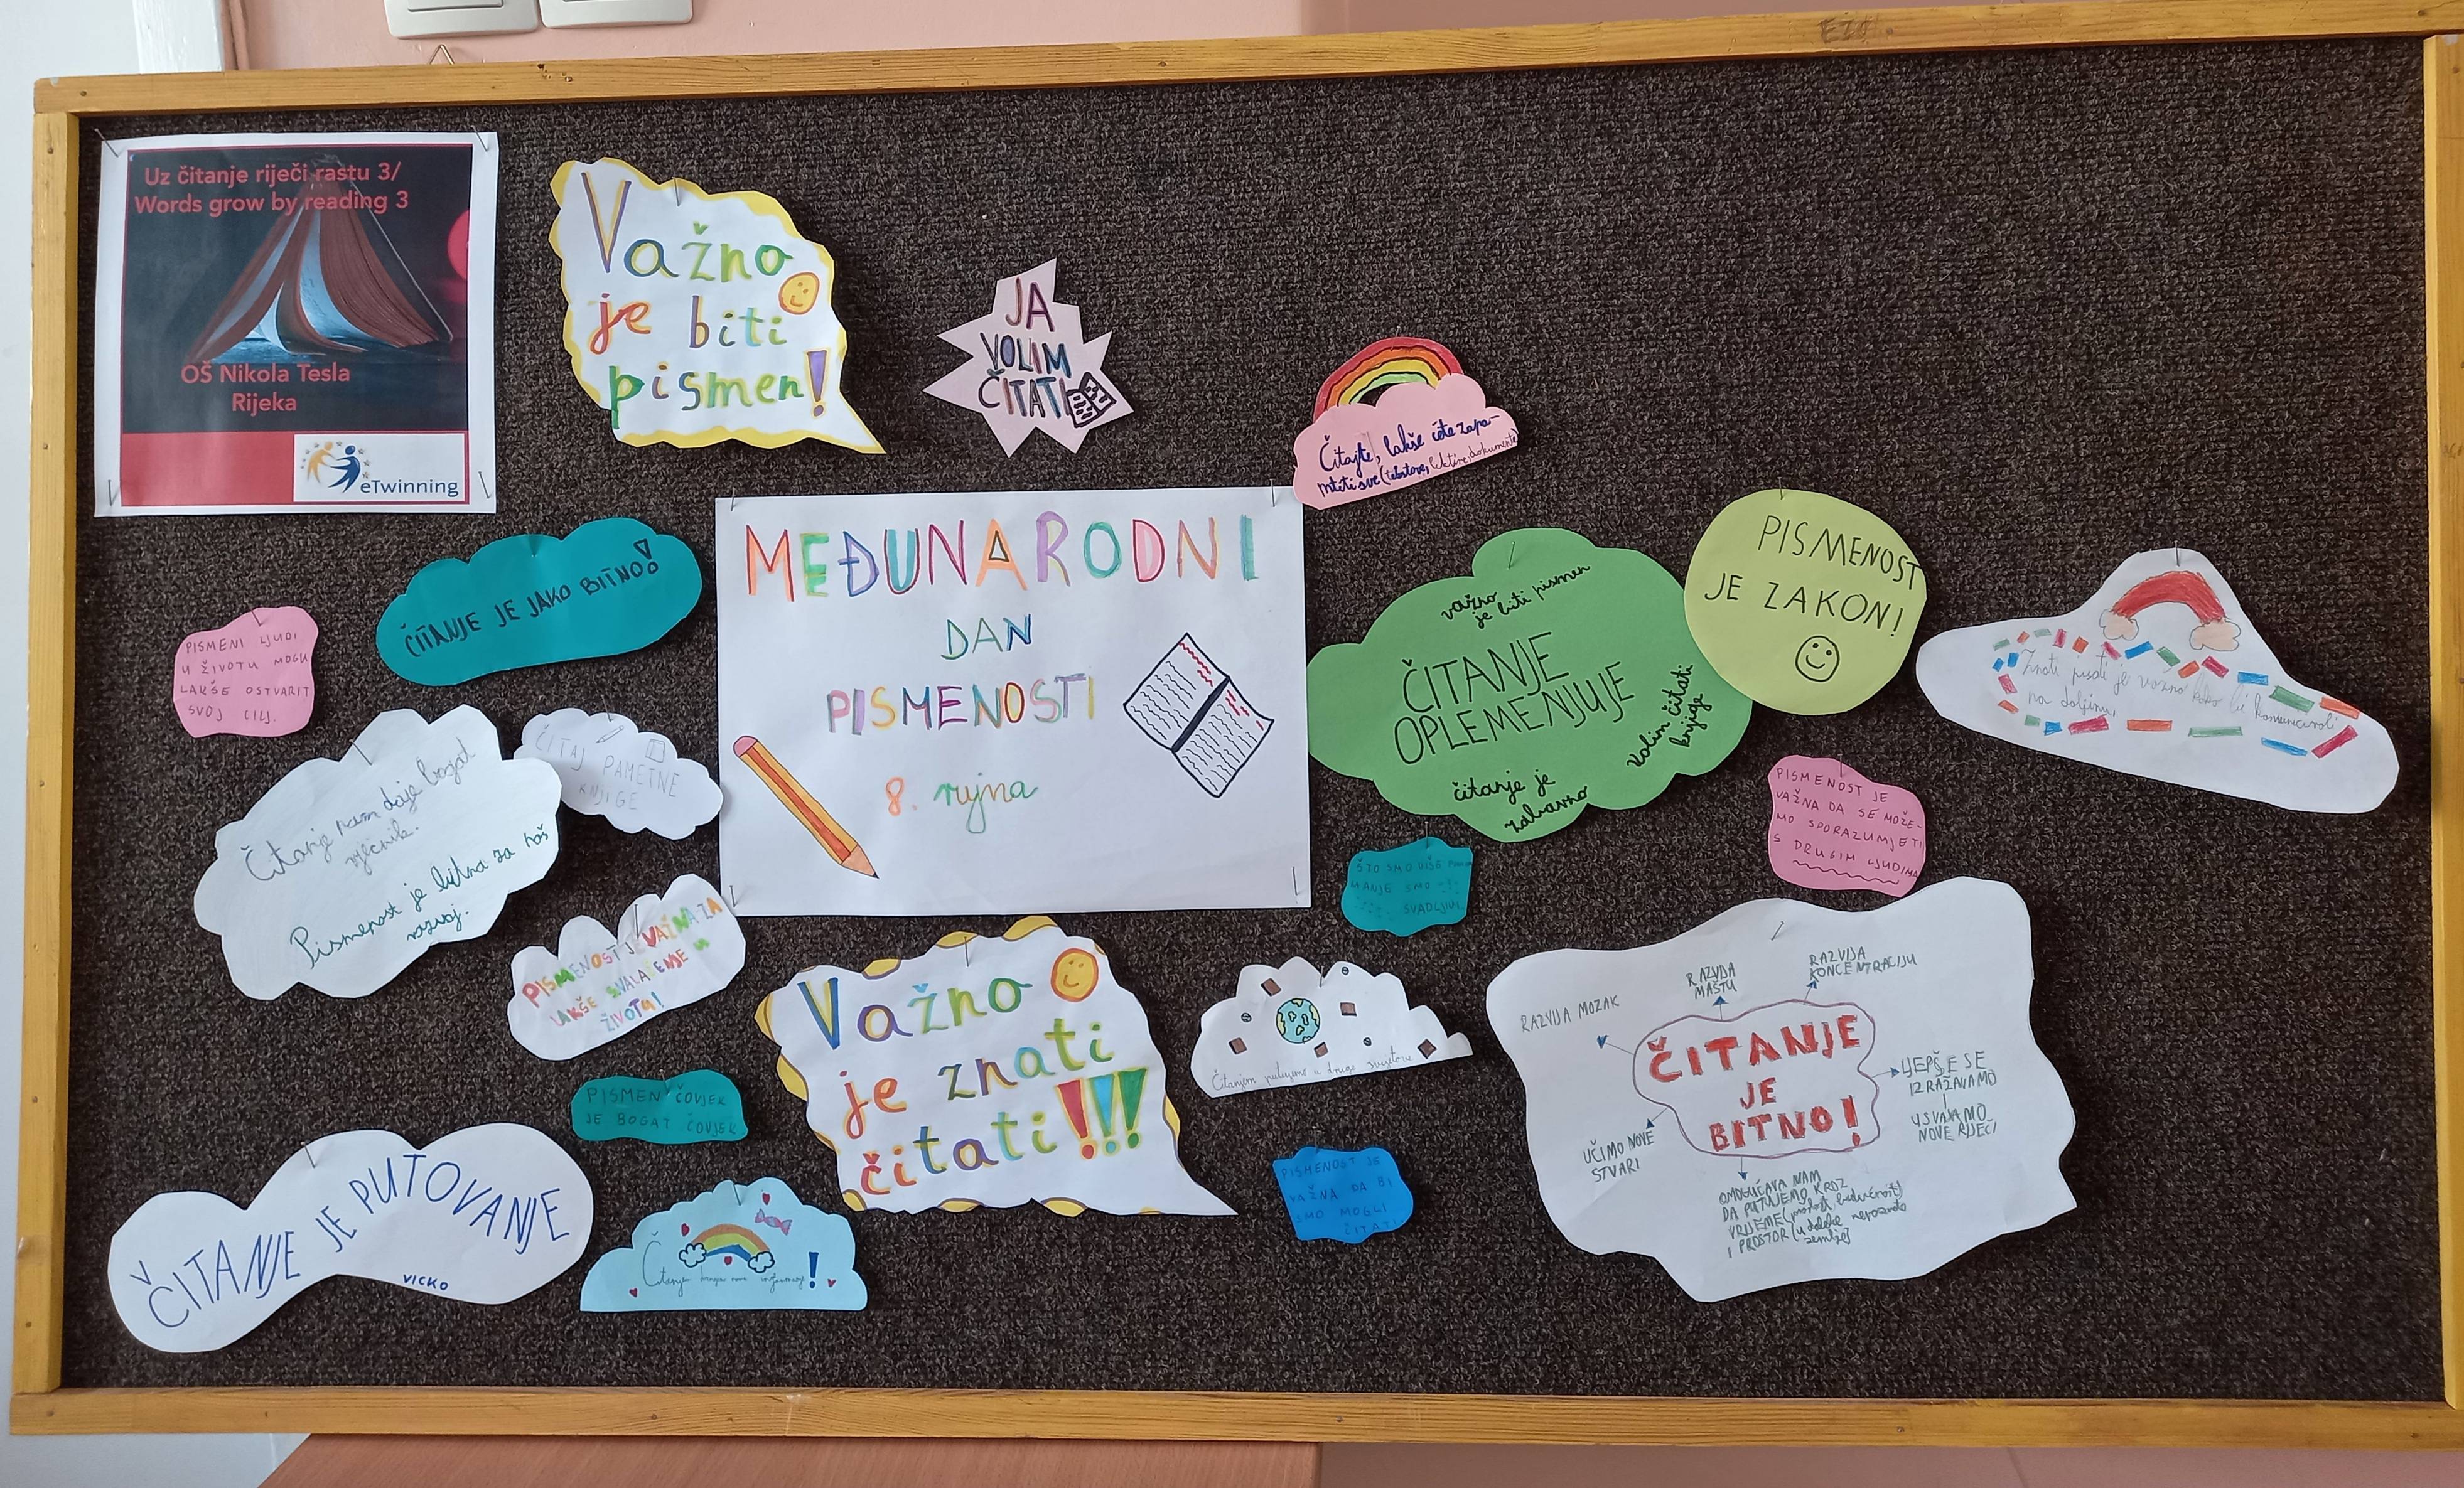 Uz čitanje riječi rastu 3/
Words grow by reading 3
OŠ Nikola Tesla
Rijeka
eTwinning
Važno
je biti
pismen!
JA
VOLIM
ČITATI
Čitajte, lakše ćete zapa-
mtiti sve (tekstove, lektire, dokumente)
ČITANJE JE JAKO BITNO!
PISMENI LJUDI
U ŽIVOTU MOGU
LAKŠE OSTVARIT
SVOJ CILJ.
MEĐUNARODNI
DAN
PISMENOSTI
8. rujna
važno
je biti pismen
ČITANJE
OPLEMENJUJE
Volim čitati
knjige
čitanje je
zabavno
PISMENOST
JE ZAKON!
Znati pisati je važno kako bi komunicirali
na daljinu,
Čitanje nam daje bogat
rječnik.
Pismenost je bitna za naš
razvoj.
ČITAJ PAMETNE
KNJIGE
PISMENOST JE
VAŽNA DA SE MOŽE-
MO SPORAZUMJETI
S DRUGIM LJUDIMA
ŠTO SMO VIŠE
MANJE SMO
SVADLJIVI.
PISMENOST JE VAŽNA ZA
LAKŠE SNALAŽENJE U
ŽIVOTU!
Važno
je znati
čitati!!!
Čitanjem putujemo u druge svjetove
RAZVIJA MOZAK
RAZVIJA
MAŠTU
RAZVIJA
KONCENTRACIJU
ČITANJE
JE
BITNO!
LJEPŠE SE
IZRAŽAVAMO
I
USVAJAMO
NOVE RIJEČI
UČIMO NOVE
STVARI
OMOGUĆAVA NAM
DA PUTUJEMO KROZ
VRIJEME (prošlost, budućnost)
I PROSTOR (u daleke
zemlje)
PISMEN ČOVJEK
JE BOGAT ČOVJEK
PISMENOST JE
VAŽNA DA BI
SMO MOGLI
ČITATI
ČITANJE JE PUTOVANJE
VICKO
Čitanjem nove informacije!